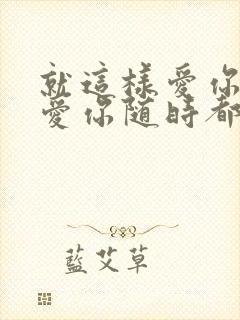 就這樣愛你
愛你隨時都
藍艾草